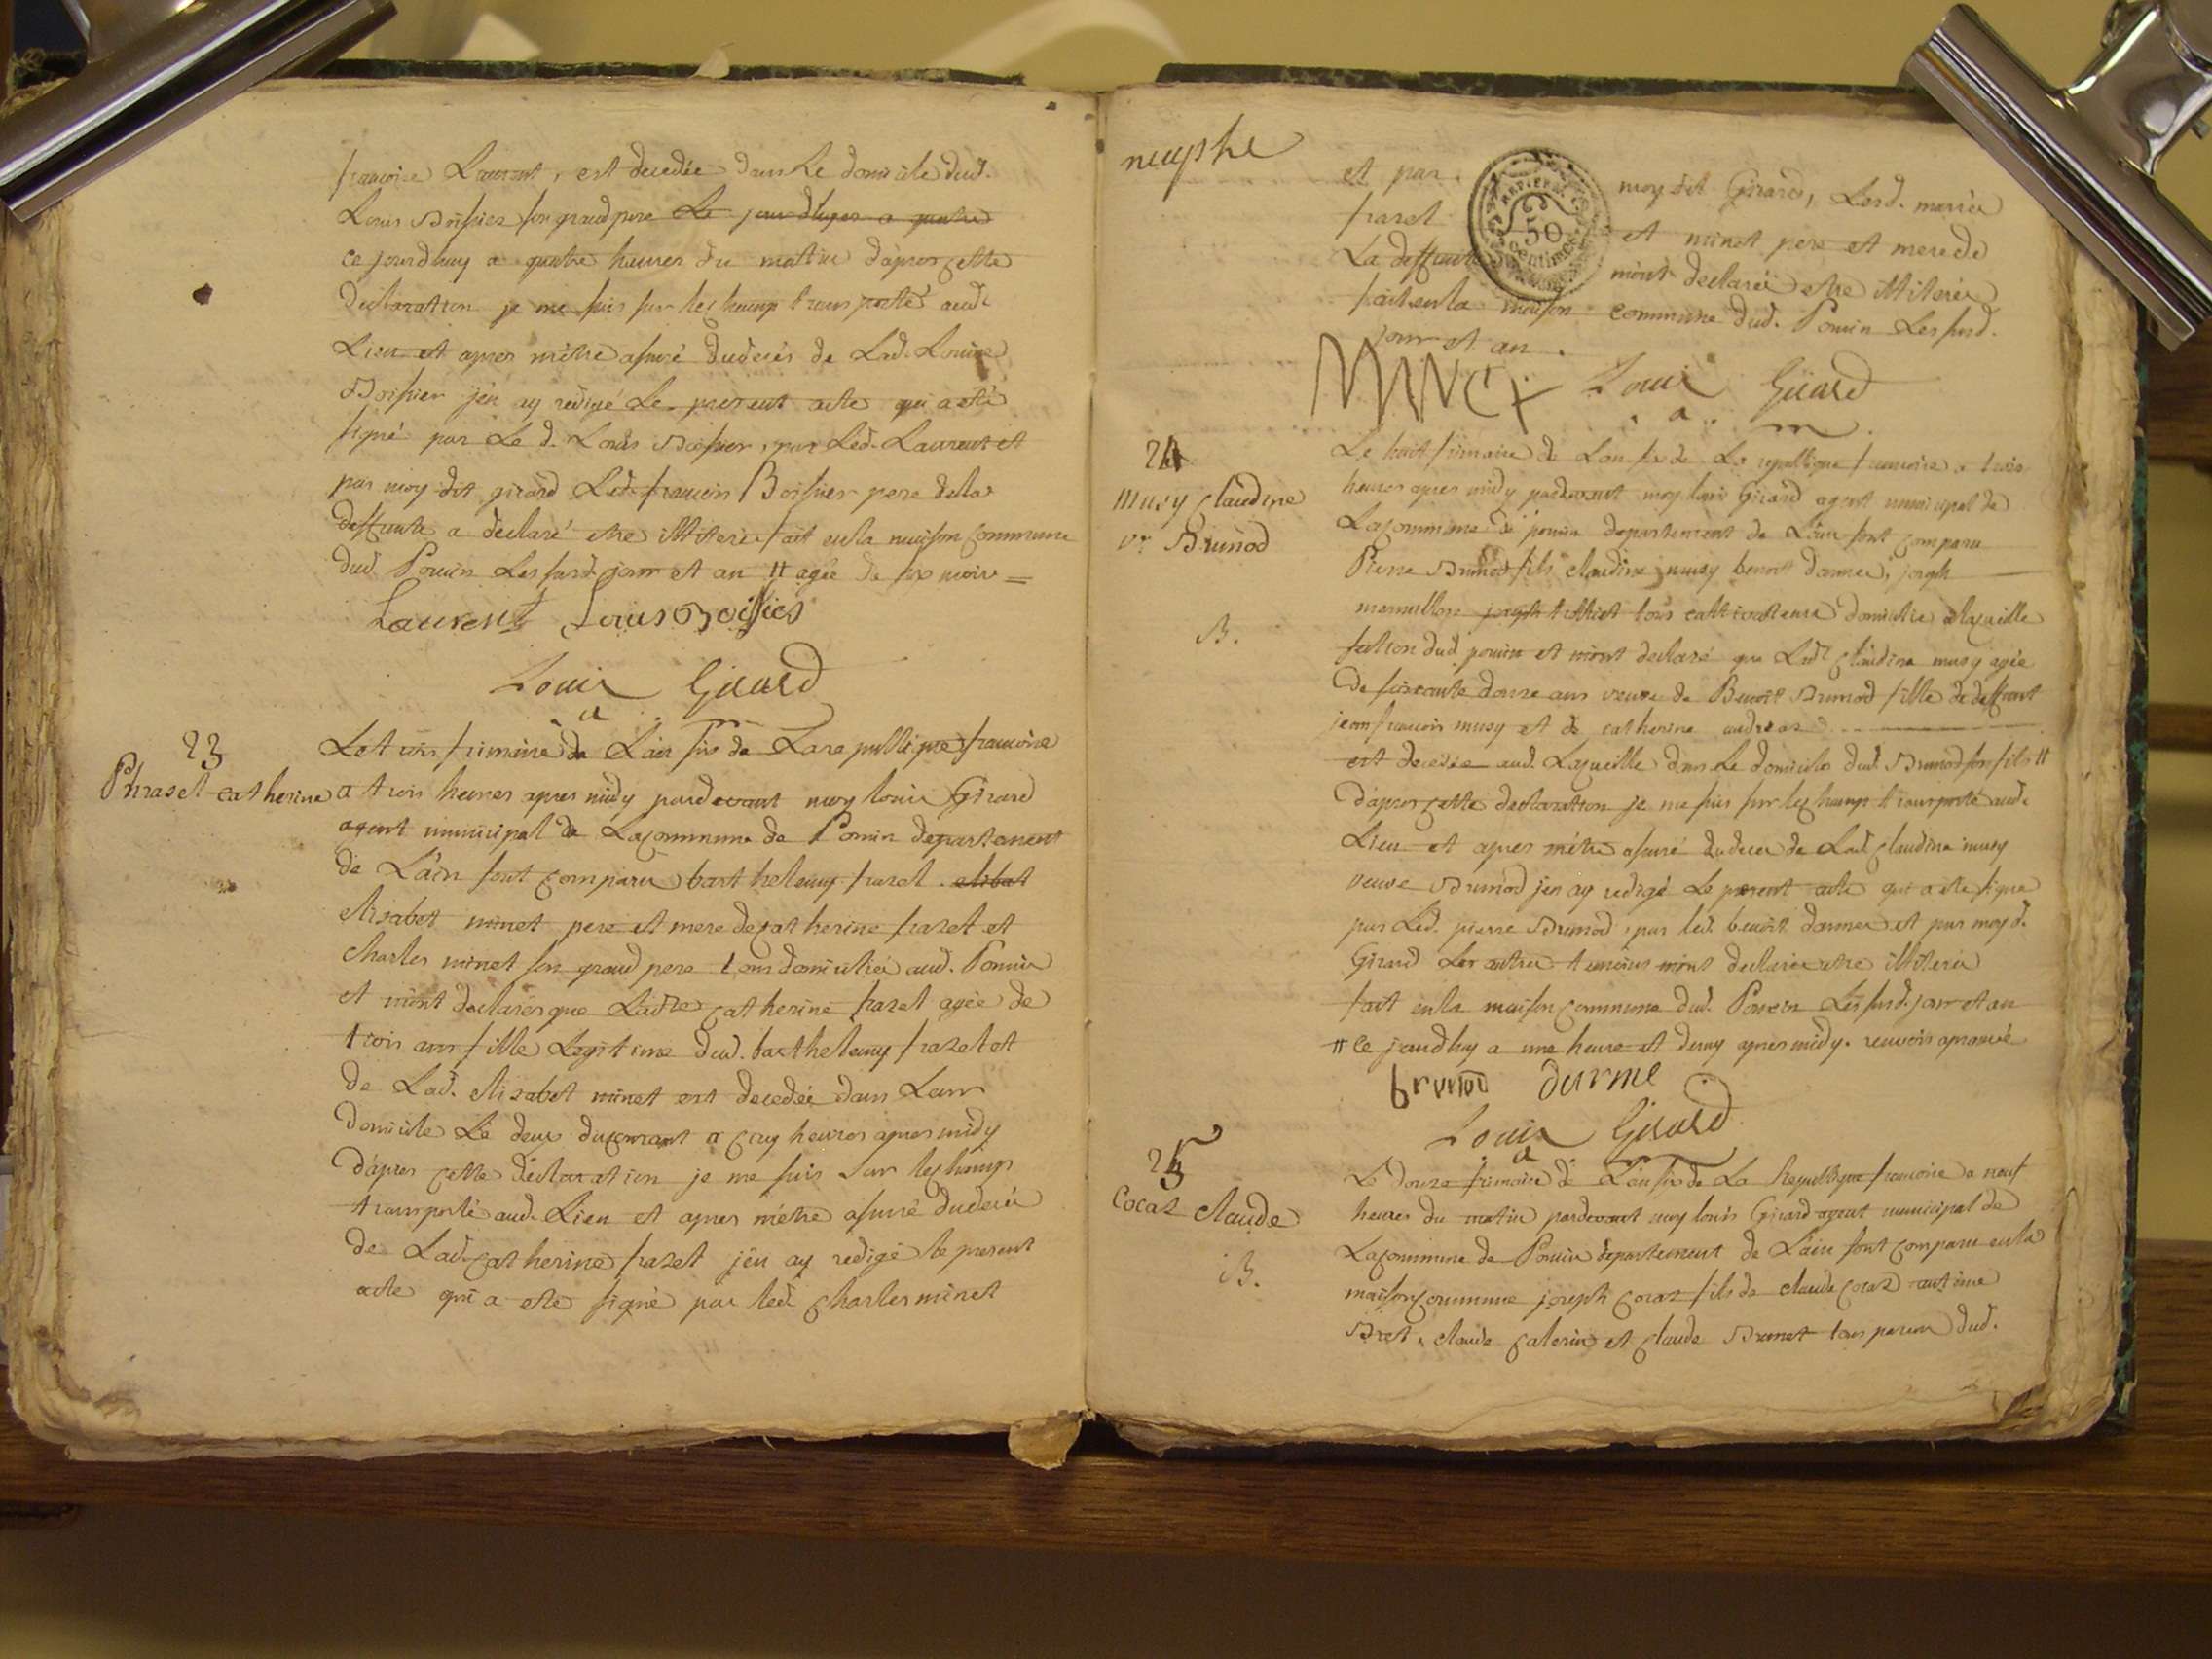 francoise Laurent, est decedée dans Le domicile dud.
Louis Boissier son grand pere Le jourdhuy a quatre
ce jourdhuy a quatre heures du matin d'apres cette
declaration je me suis sur le champ transporté aud.
Lieu et apres m'être assuré du decés de Lad. Louise
Boissier j'en ay redigé Le present acte qui a eté
signé par Le d. Louis Boissier, par Led. Laurent et
par moy dit girard Led. francois Boissier pere dela
deffunte a declaré etre illiteré fait en la maison commune
dud. Poncin Les susd. jour et an # agée de six mois =
Laurent Louis Boissier
Louis Girard
a m
23
Phrazet catherine
Le trois frimaire de L'an six de La republique francoise
a trois heures apres midy pardevant moy louis Girard
agent municipal de La commune de Poncin departement
de L'ain sont comparu barthelemy frazet. elibat
elisabet minet pere et mere de catherine frazet et
charles minet son grand pere tous domiciliés aud. Poncin
et m'ont declarés que Ladte catherine frazet agée de
trois ans fille Legitime dud. barthelemy frazet et
de Lad. elisabet minet est decedée dans Leur
domicile Le deux du courant a cinq heures apres midy
d'apres cette déclaration je me suis sur le champ
transporté aud. Lieu et apres m'être assuré du decés
de Lad. catherine frazet j'en ay redigé le present
acte qui a ete signé par led. charles minet
et par moy dit Girard, Lesd. mariés
frazet et minet pere et mere de
La deffunte m'ont declarés etre illiterés
fait en la maison commune dud. Poncin Les susd.
jour et an.
50
centimes
MINET Louis Girard
a m
24
musy claudine
ve Brunod
B.
Le huit frimaire de L'an six de La republique francoise a trois
heures apres midy pardevant moy louis Girard agent municipal de
La commune de poncin departement de L'ain sont comparu
Pierre Brunod fils claudine musy benoit darmes, joseph
mermillon joseph tous cultivateurs domiciliés a la cueille
section dud. poncin et m'ont declaré que Lad. claudine musy agée
de soixante douze ans veuve de Benoit Brunod fille de deffunt
jean francois musy et de catherine
est decedée aud. La cueille dans Le domicile dud. Brunod son fils #
D'apres cette declaration je me suis sur le champ transporté aud.
Lieu et apres m'être assuré du deces de Lad. claudine musy
veuve Brunod j'en ay redigé Le present acte qui a ete signé
par Led. pierre Brunod, par led. benoit darmes et par moy d.
Girard Les autres temoins m'ont declarés etre illiterés
fait en la maison commune dud. Poncin Les susd. jour et an
# ce jourdhuy a une heure et demy apres midy. renvois aprouvé
brunod darme
Louis Girard
a m
25
Cocaz claude
B.
Le douze frimaire de L'an six de La Republique francoise a neuf
heures du matin pardevant moy louis Girard agent municipal de
La commune de Poncin departement de L'ain sont comparu en la
maison commune joseph cocaz fils de claude cocaz
Bret, claude et claude Brunet tous parens dud.